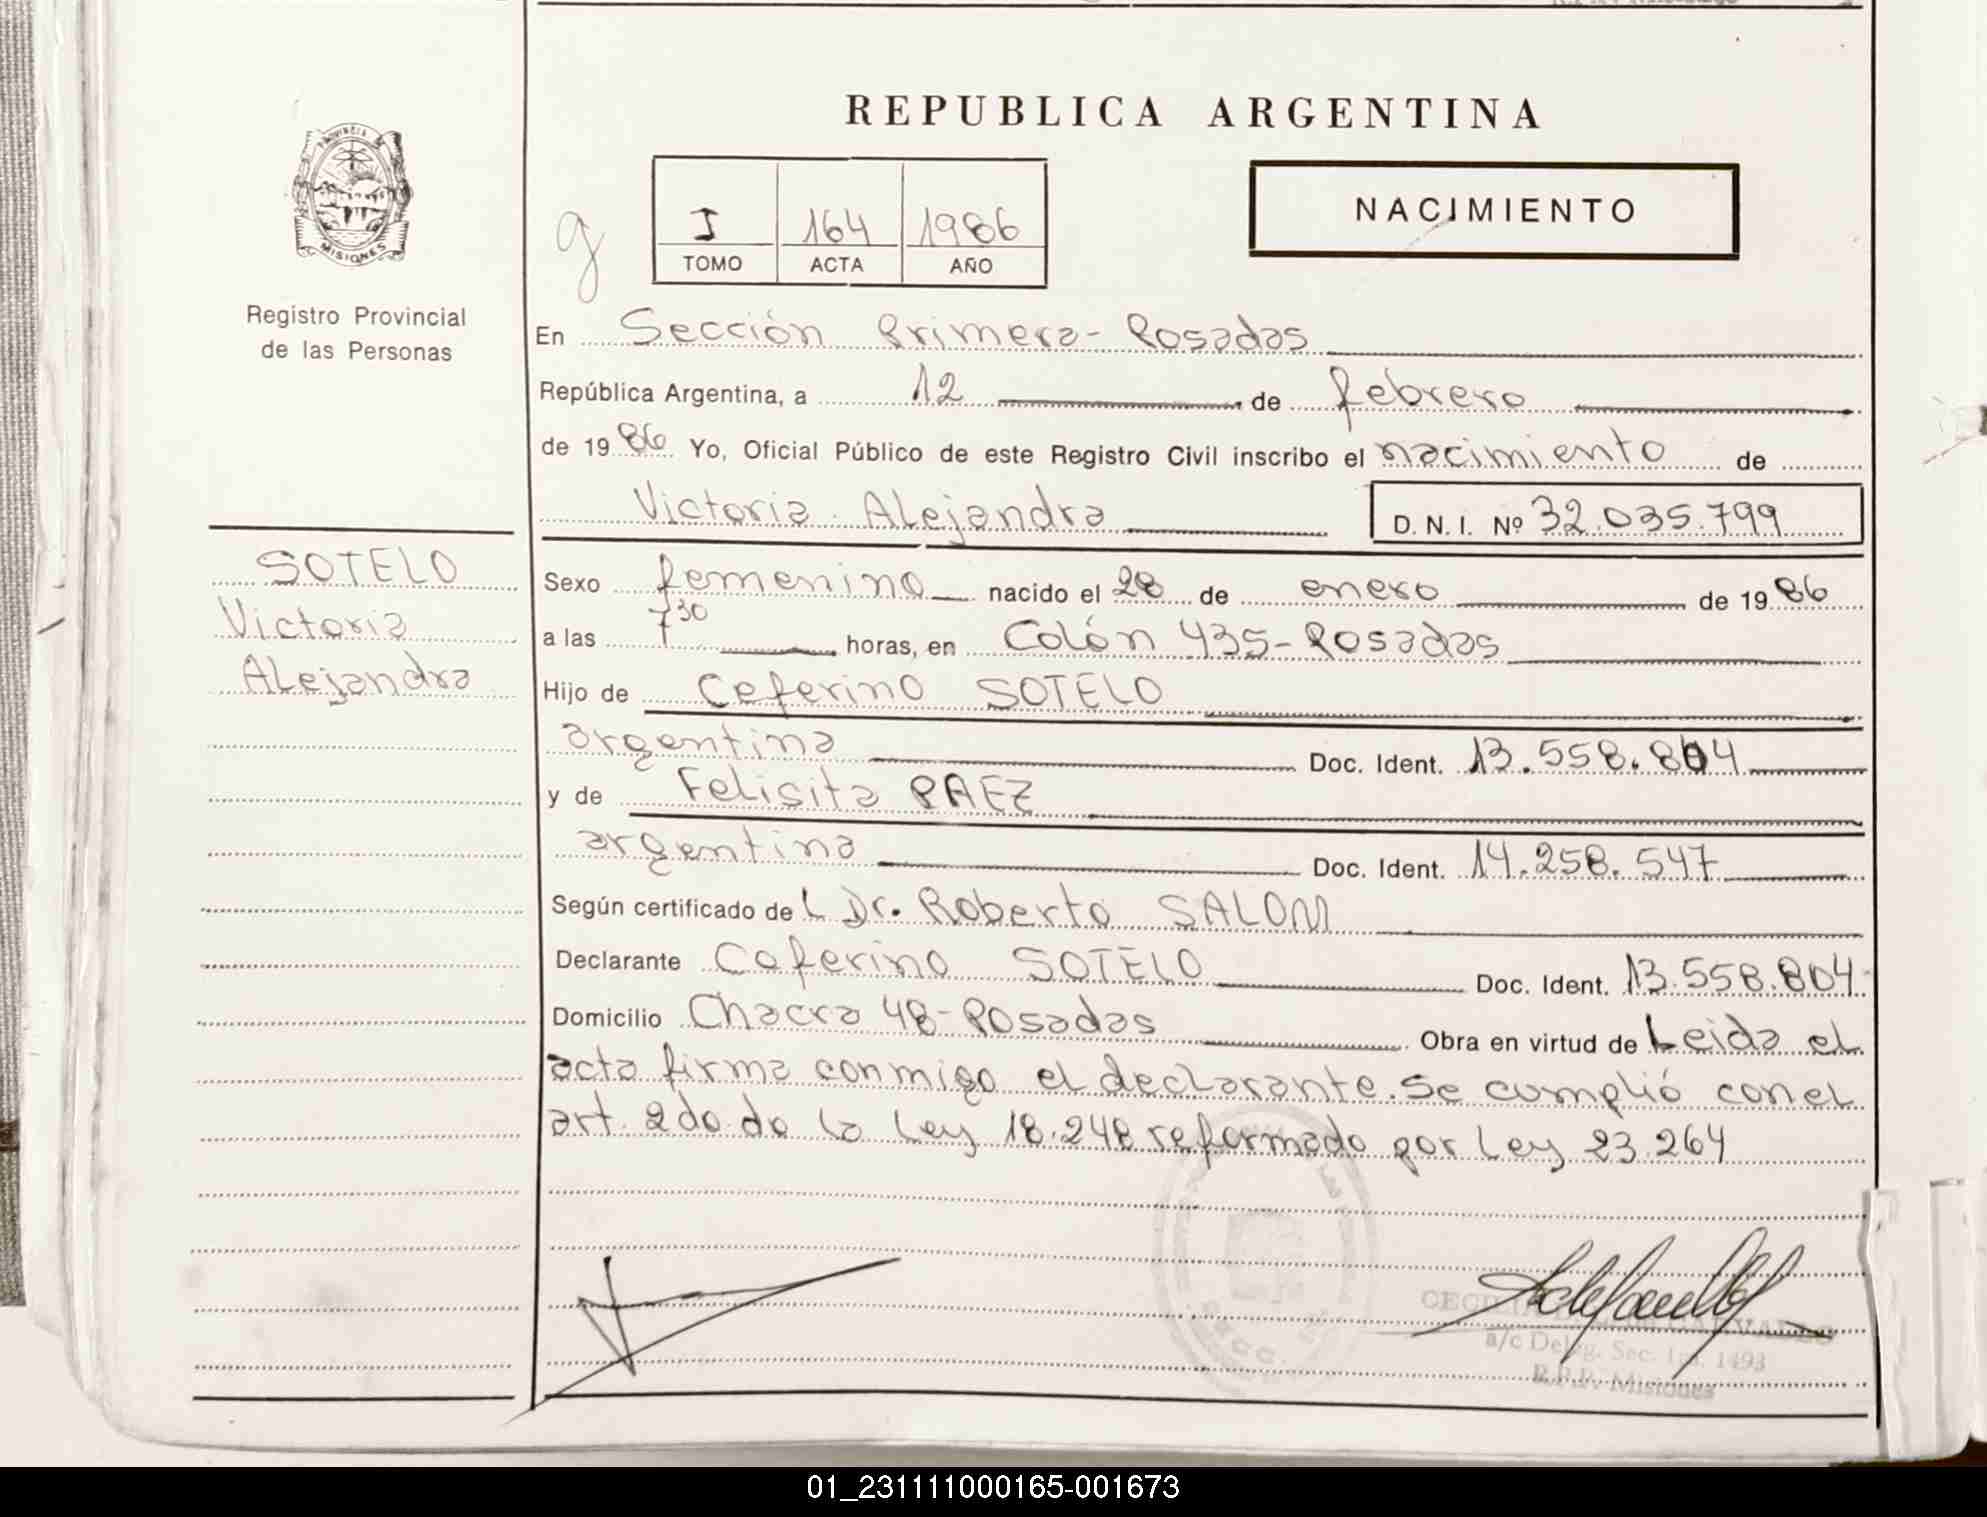 REPUBLICA ARGENTINA
PROVINCIA DE
MISIONES
Registro Provincial
de las Personas
g
I 164 1986
TOMO ACTA AÑO
NACIMIENTO
En Sección Primera - Posadas
República Argentina, a 12 de febrero
de 1986 Yo, Oficial Público de este Registro Civil inscribo el nacimiento de
Victoria Alejandra D. N. I. Nº 32.035.799
SOTELO
Victoria
Alejandra
Sexo femenino nacido el 28 de enero de 1986
a las 7 30 horas, en Colón 435 - Posadas
Hijo de Ceferino SOTELO
argentina Doc. Ident. 13.558.804
y de Felisita PAEZ
argentina Doc. Ident. 14.258.547
Según certificado de L Dr. Roberto SALOM
Declarante Ceferino SOTELO Doc. Ident. 13.558.804
Domicilio Chacra 48 - Posadas Obra en virtud de Leida el
acta firma conmigo el declarante. Se cumplió con el
art. 2do de la Ley 18.248 reformado por Ley 23.264
a/c Deleg. Sec. 1ra. 1493
R.P.P. Misiones
01_231111000165-001673